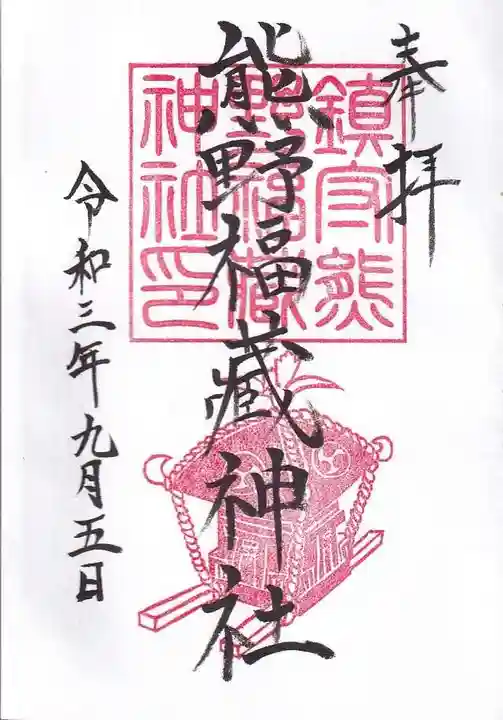 奉拝
鎮守熊
野福蔵
神社印
熊野福蔵神社
令和三年九月五日